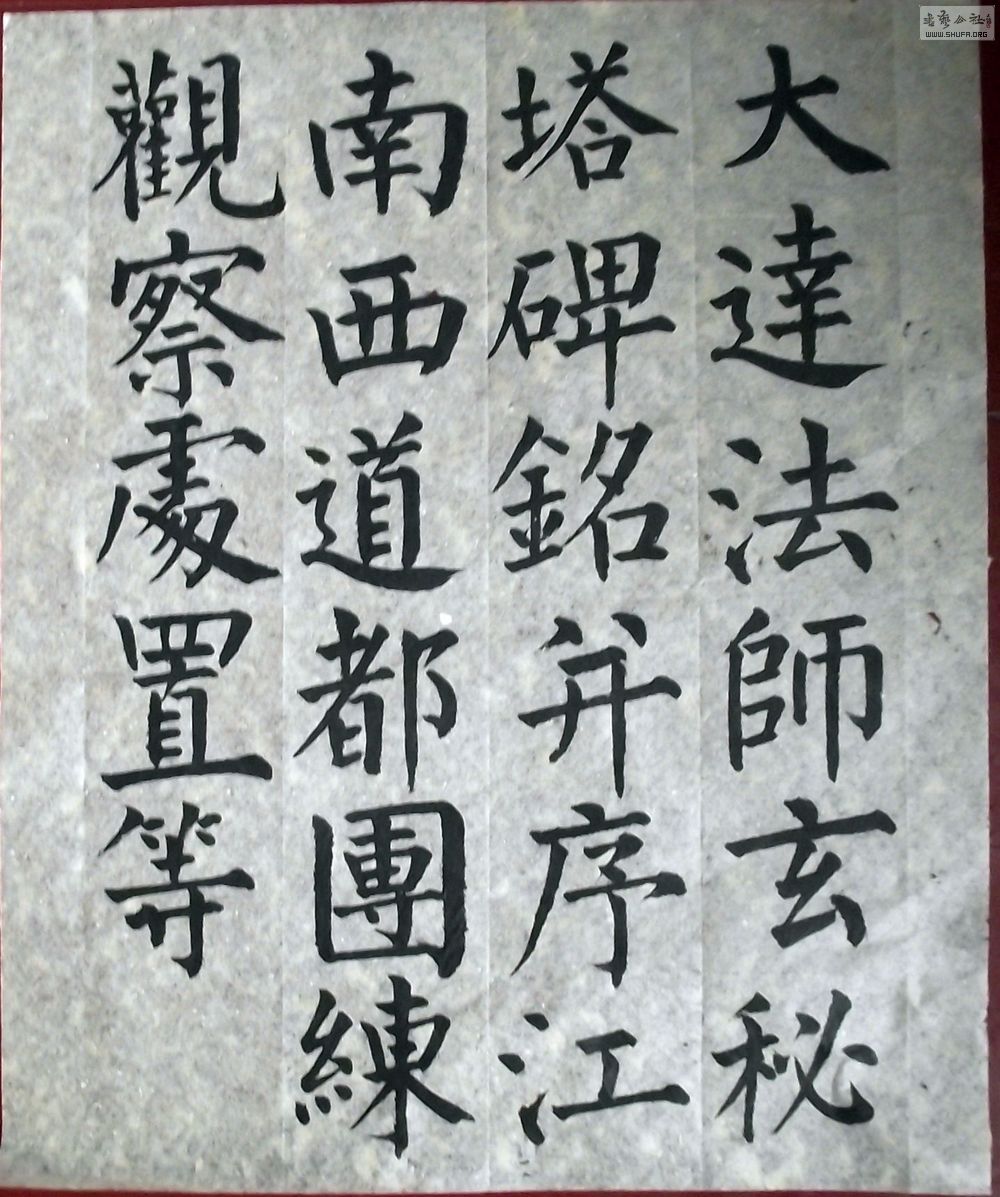 大達法師玄秘
塔碑銘并序江
南西道都團練
觀察處置等
書藝公社
WWW.SHUFA.ORG